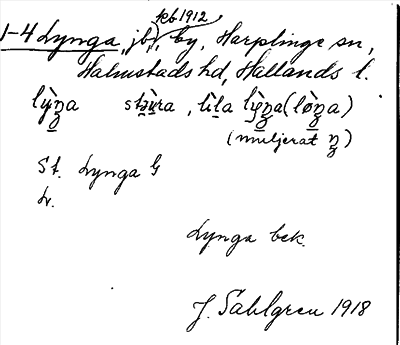 feb 1912
1-4 Lynga, jb), by, Harplinge sn,
Halmstads hd, Hallands l.
lỳŋa stɷ̀ra, lìla lỳŋa (lø̀ŋa)
(muljerat ŋ)
St. Lynga G
L.
Lynga bek.
J. Sahlgren 1918